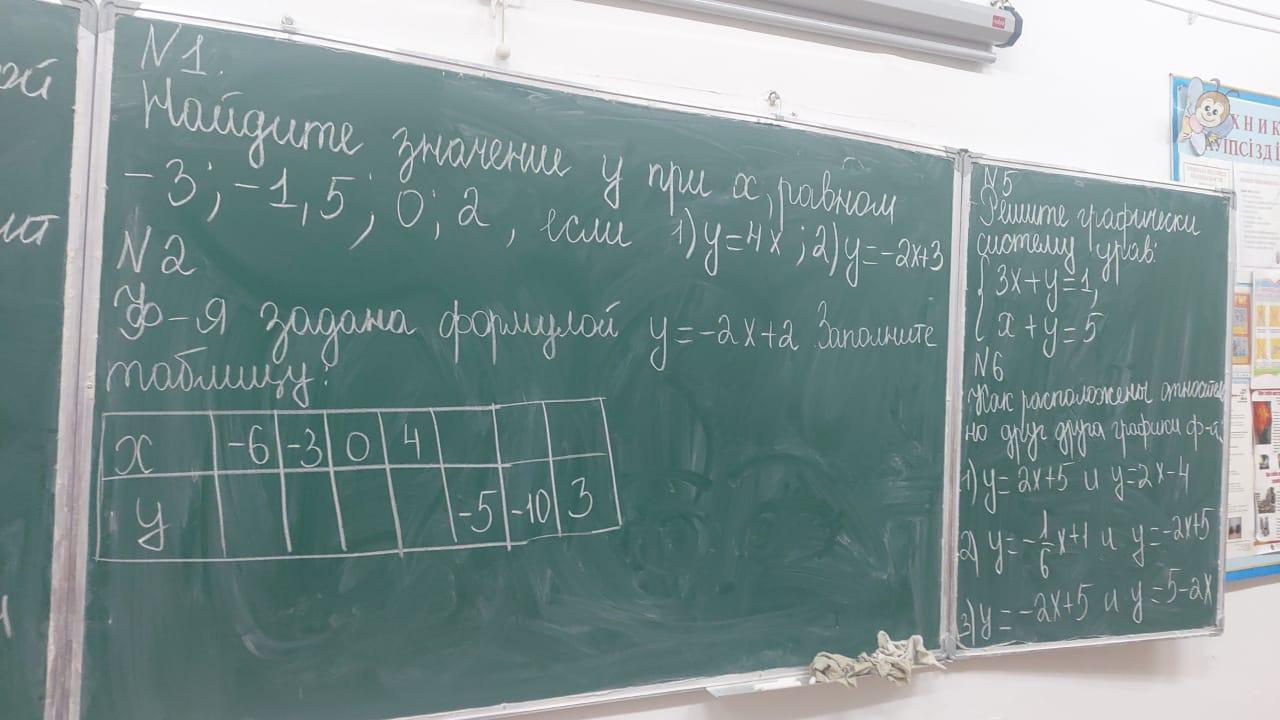 ой
ит
N1.
Найдите значение y при x, равном
-3; -1,5; 0; 2, если 1) y=4x; 2) y=-2x+3
N2
Ф-я задана формулой y=-2x+2 Заполните
таблицу:
x -6 -3 0 4
y -5 -10 3
N5
Решите графически
систему урав:
3x+y=1,
x+y=5
N6
Как расположены относител
но друг друга графики ф-й
1) y=2x+5 и y=2x-4
2) y=-1/6x+1 и y=-2x+5
3) y=-2x+5 и y=5-2x
ХНИК
АУІПСІЗДІ